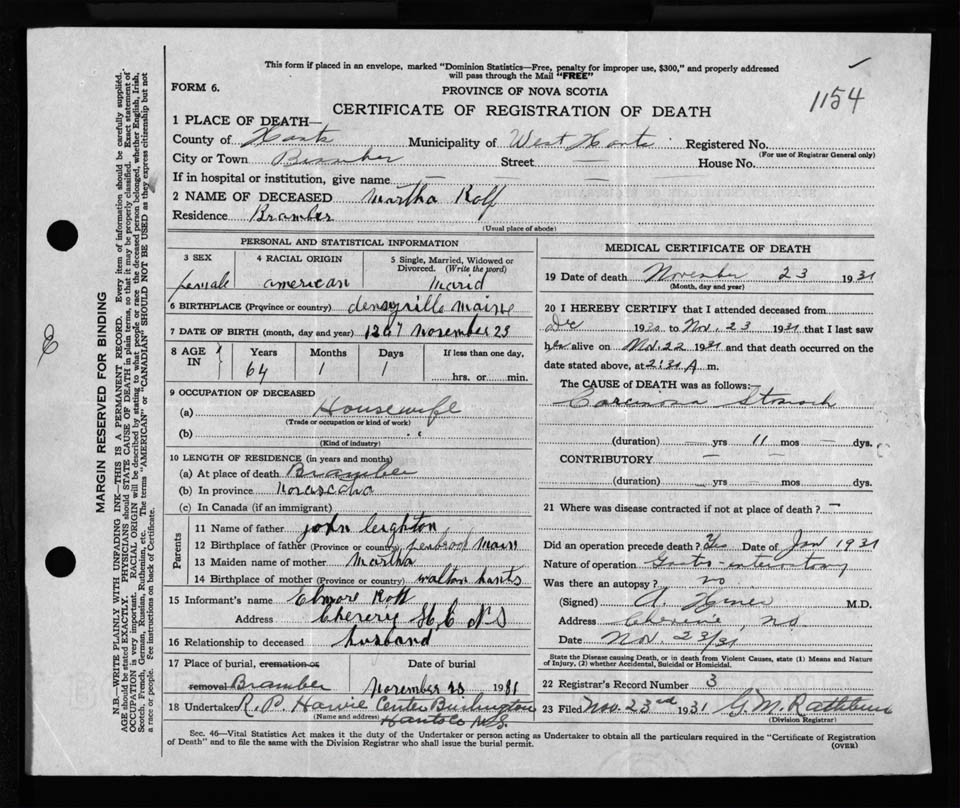 This form if placed in an envelope, marked "Dominion Statistics—Free, penalty for improper use, $300," and properly addressed
will pass through the Mail "FREE"
FORM 6.
PROVINCE OF NOVA SCOTIA
1154
CERTIFICATE OF REGISTRATION OF DEATH
1 PLACE OF DEATH—
County of Hants Municipality of West Hants Registered No.
(For use of Registrar General only)
City or Town Bramber Street — House No.
If in hospital or institution, give name — — — —
2 NAME OF DECEASED Martha Rolf
Residence Bramber
(Usual place of abode)
PERSONAL AND STATISTICAL INFORMATION
3 SEX 4 RACIAL ORIGIN 5 Single, Married, Widowed or
Divorced. (Write the word)
female american marid
6 BIRTHPLACE (Province or country) densyville maine
7 DATE OF BIRTH (month, day and year) November 23
8 AGE IN Years Months Days If less than one day,
64 1 1 hrs. or min.
9 OCCUPATION OF DECEASED
(a) Housewife
(Trade or occupation or kind of work)
(b)
(Kind of industry)
10 LENGTH OF RESIDENCE (in years and months)
(a) At place of death Bramber
(b) In province novascotia
(c) In Canada (if an immigrant)
Parents
11 Name of father john leighton
12 Birthplace of father (Province or country) penbrook main
13 Maiden name of mother martha
14 Birthplace of mother (Province or country) walton hants
15 Informant's name Elmore Rolf
Address Chevery H, C N S
16 Relationship to deceased husband
17 Place of burial, cremation or Date of burial
removal Bramber November 25 1931
18 Undertaker R. P. Harvie Center Burlington
(Name and address) Hants Co N.S.
MEDICAL CERTIFICATE OF DEATH
19 Date of death November 23 1931
(Month, day and year)
20 I HEREBY CERTIFY that I attended deceased from
Dec 1930 to Nov. 23 1931 that I last saw
her alive on Nov. 22 1931 and that death occurred on the
date stated above, at 2:30 A m.
The CAUSE OF DEATH was as follows:
Carcinoma Stomach
(duration) — yrs 11 mos — dys.
CONTRIBUTORY — —
(duration) — yrs — mos — dys.
21 Where was disease contracted if not at place of death? —
Did an operation precede death? Yes Date of Jan 1931
Nature of operation Gastro-enterostomy
Was there an autopsy? no
(Signed) A. M.D.
Address Cheverie, N.S.
Date Nov. 23/31
State the Disease causing Death, or in death from Violent Causes, state (1) Means and Nature
of Injury, (2) whether Accidental, Suicidal or Homicidal.
22 Registrar's Record Number 3
23 Filed Nov. 23rd 1931 G. M. Rathburn
(Division Registrar)
Sec. 46—Vital Statistics Act makes it the duty of the Undertaker or person acting as Undertaker to obtain all the particulars required in the "Certificate of Registration
of Death" and to file the same with the Division Registrar who shall issue the burial permit.
(OVER)
MARGIN RESERVED FOR BINDING
N.B.—WRITE PLAINLY WITH UNFADING INK—THIS IS A PERMANENT RECORD. Every item of information should be carefully supplied.
AGE should be stated EXACTLY. PHYSICIANS should STATE CAUSE OF DEATH in plain terms, so that it may be properly classified. Exact statement of
OCCUPATION is very important. RACIAL ORIGIN will be described by stating to what people or race the deceased person belonged, whether English, Irish,
Scotch, French, German, Russian, Ruthenian, etc. The terms "AMERICAN" or "CANADIAN" SHOULD NOT BE USED as they express citizenship but not
a race or people. Fee instructions on back of Certificate.